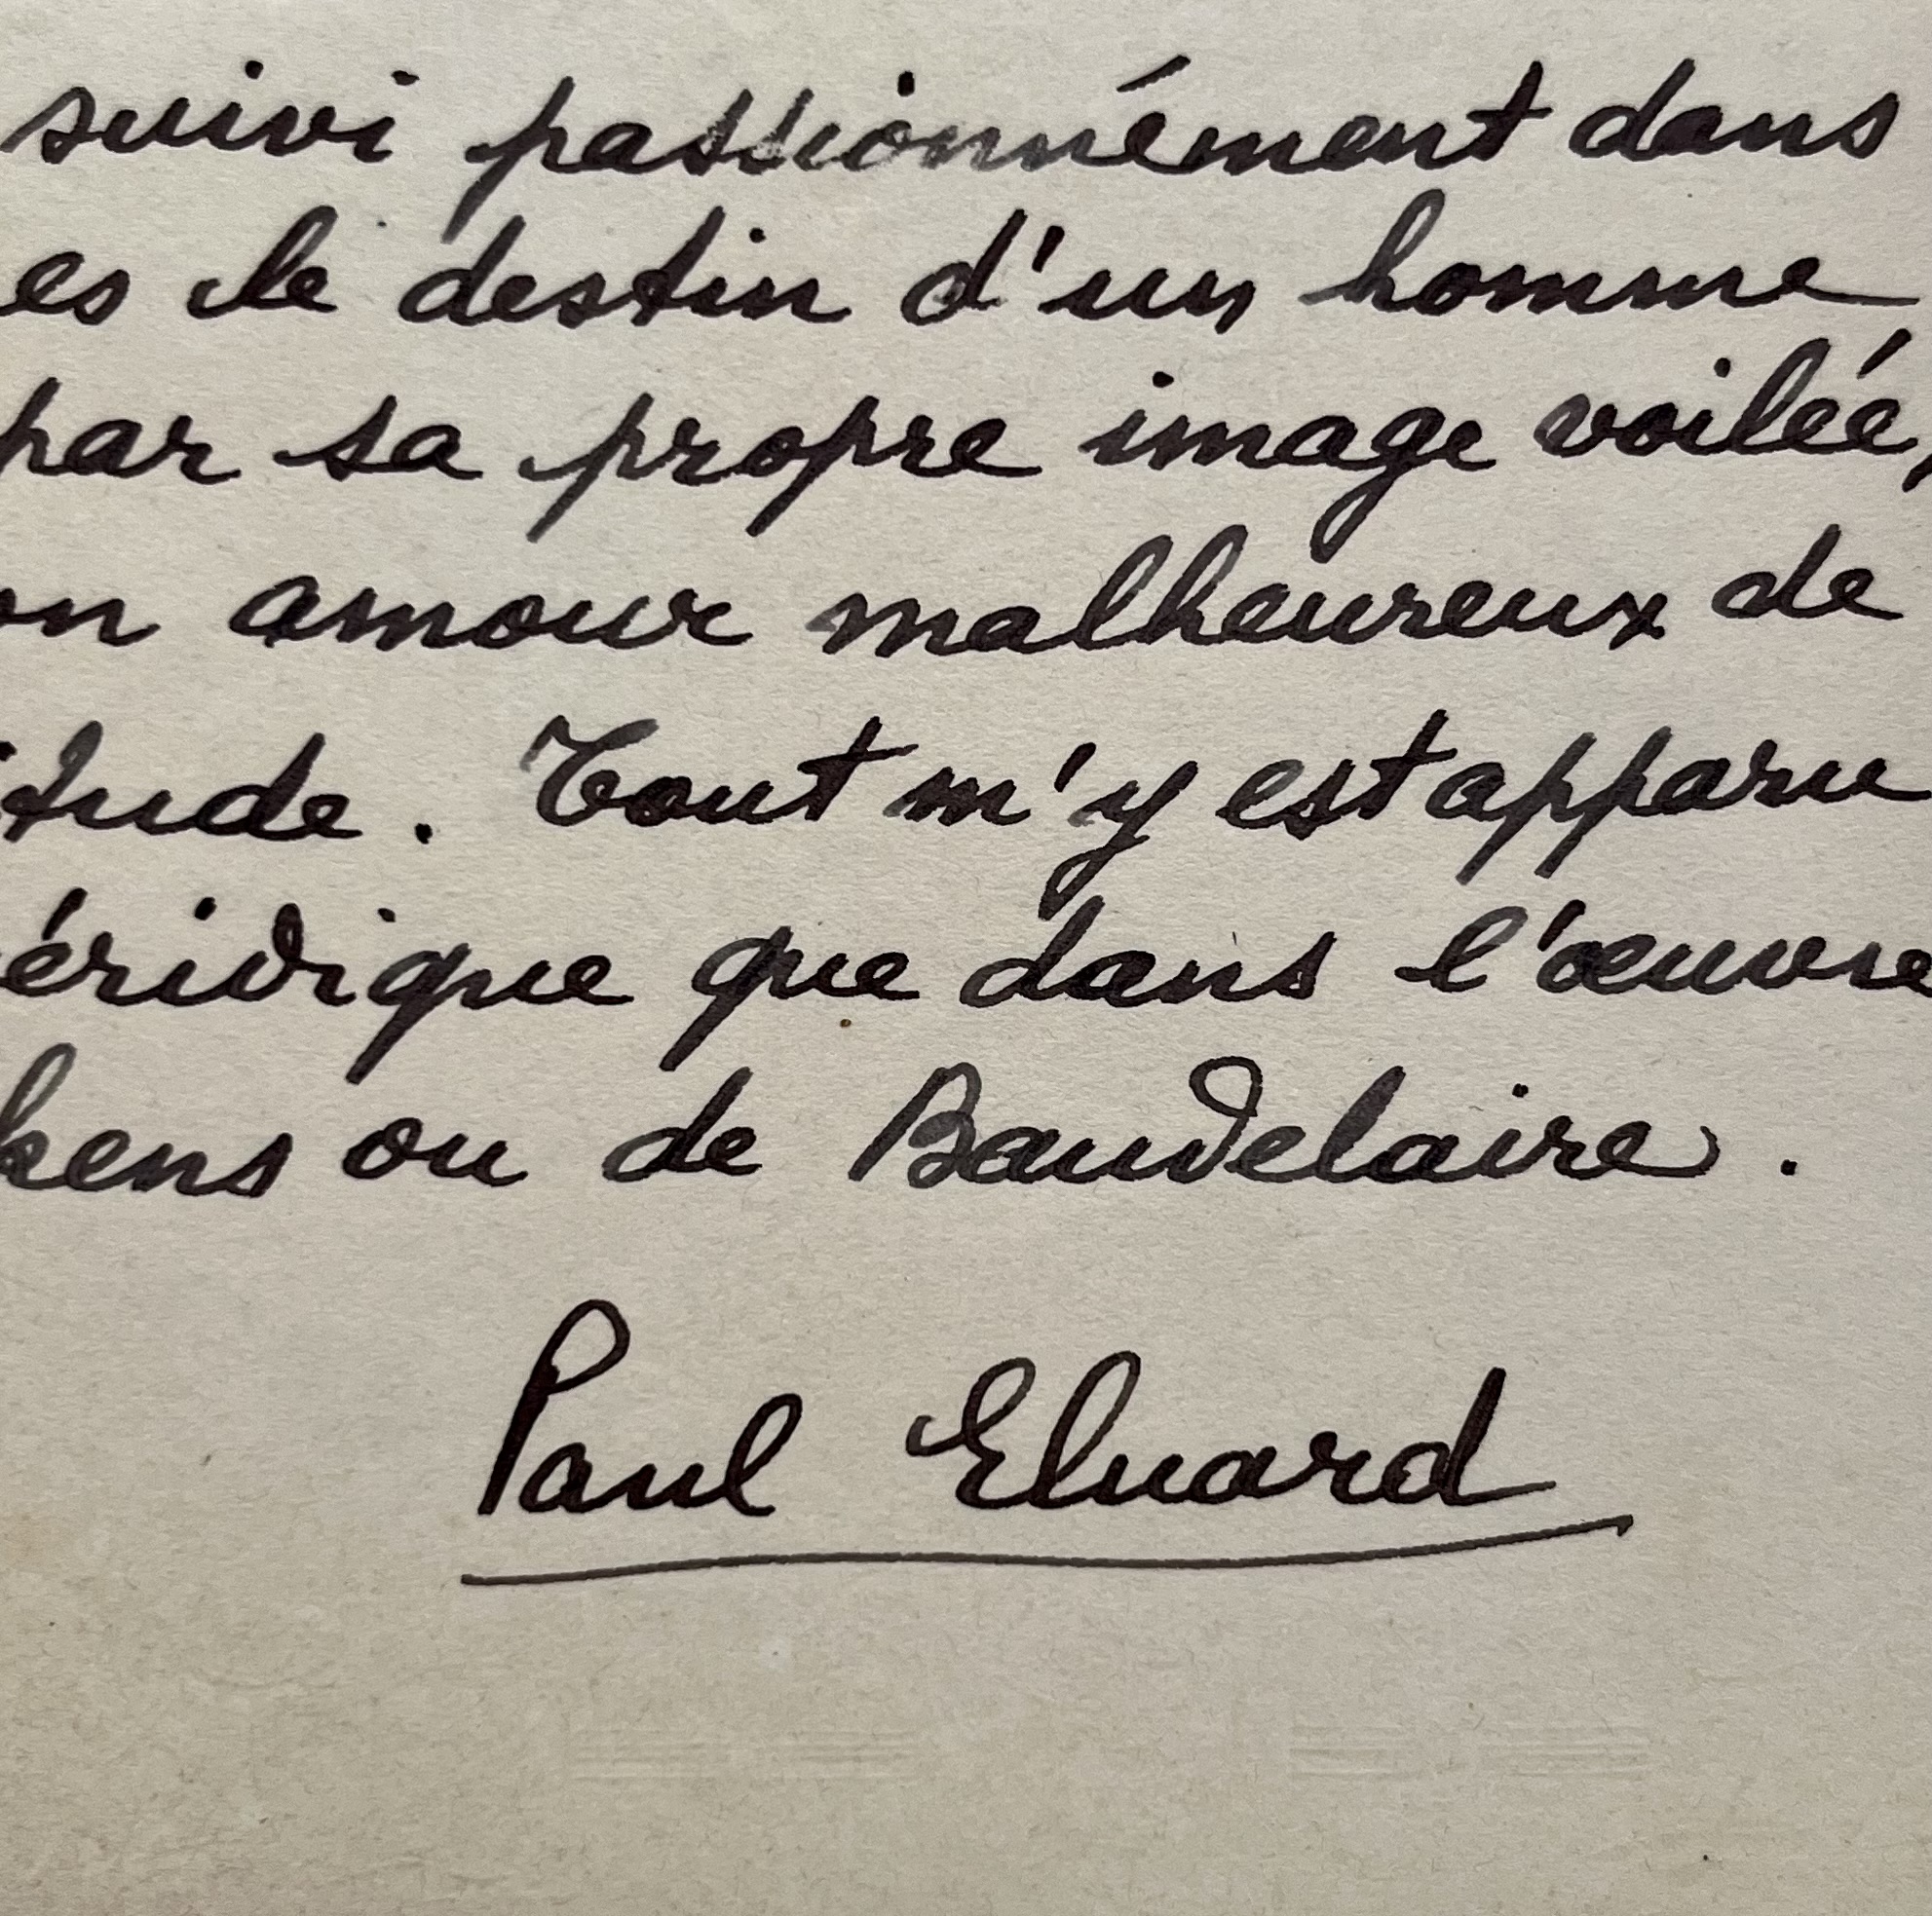 suivi passionnément dans
es le destin d'un homme
par sa propre image voilée,
on amour malheureux de
itude. Tout m'y est apparu
éridique que dans l'œuvre
kens ou de Baudelaire.
Paul Eluard